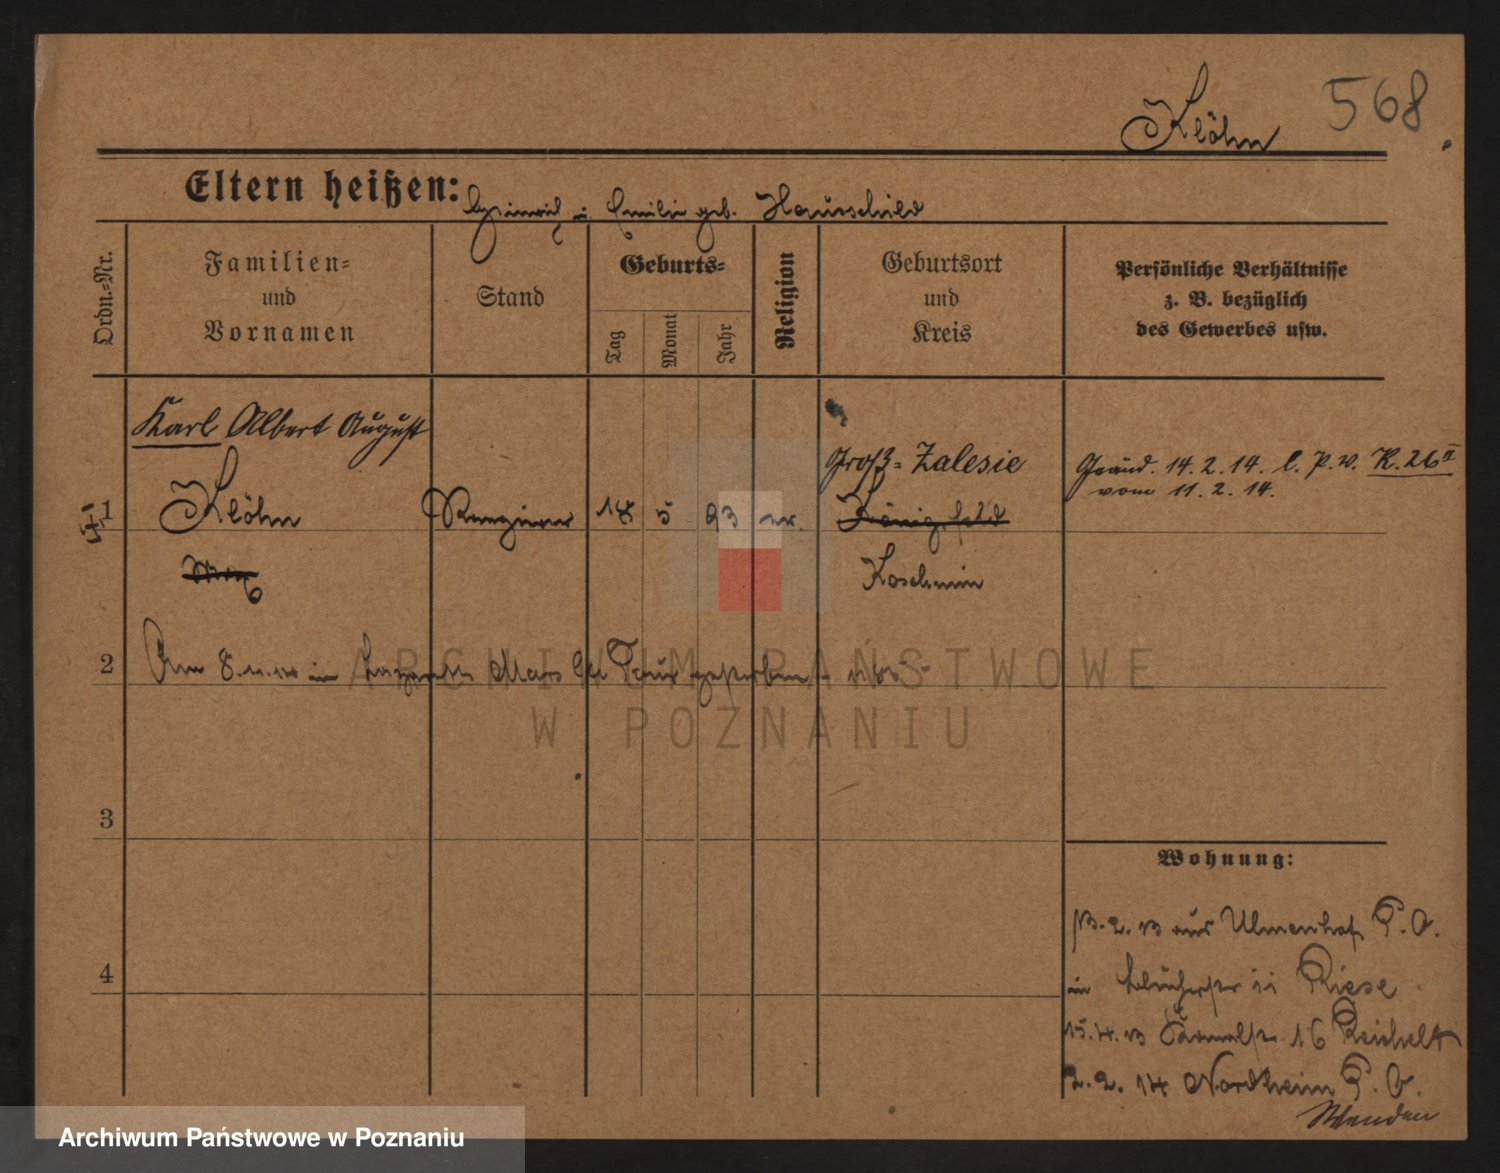 Klöhn 568.
Eltern heißen: Heinrich u. Emilie geb. Hauschild
Ordn.=Nr.
Familien=
und
Vornamen
Stand
Geburts=
Tag
Monat
Jahr
Religion
Geburtsort
und
Kreis
Persönliche Verhältnisse
z. B. bezüglich
des Gewerbes usw.
Karl Albert August
Groß=Zalesie
Geänd. 14. 2. 14. l. P. V. K. 26 II
vom 11. 2. 14.
1 Klöhn Rangierer 18 5 93 ev. Königsfeld
Max
Koschmin
2 Am 8.11.14 im Lazarett Mars la Tour gestorben
ARCHIWUM PAŃSTWOWE
W POZNANIU
3
Wohnung:
13. 2. 13 aus Ulmenhof P. O.
4
in Blücherstr 11 Riese
15.4.13 16 Reichelt
2. 2. 14 Nordheim P. O.
Wenden
Archiwum Państwowe w Poznaniu